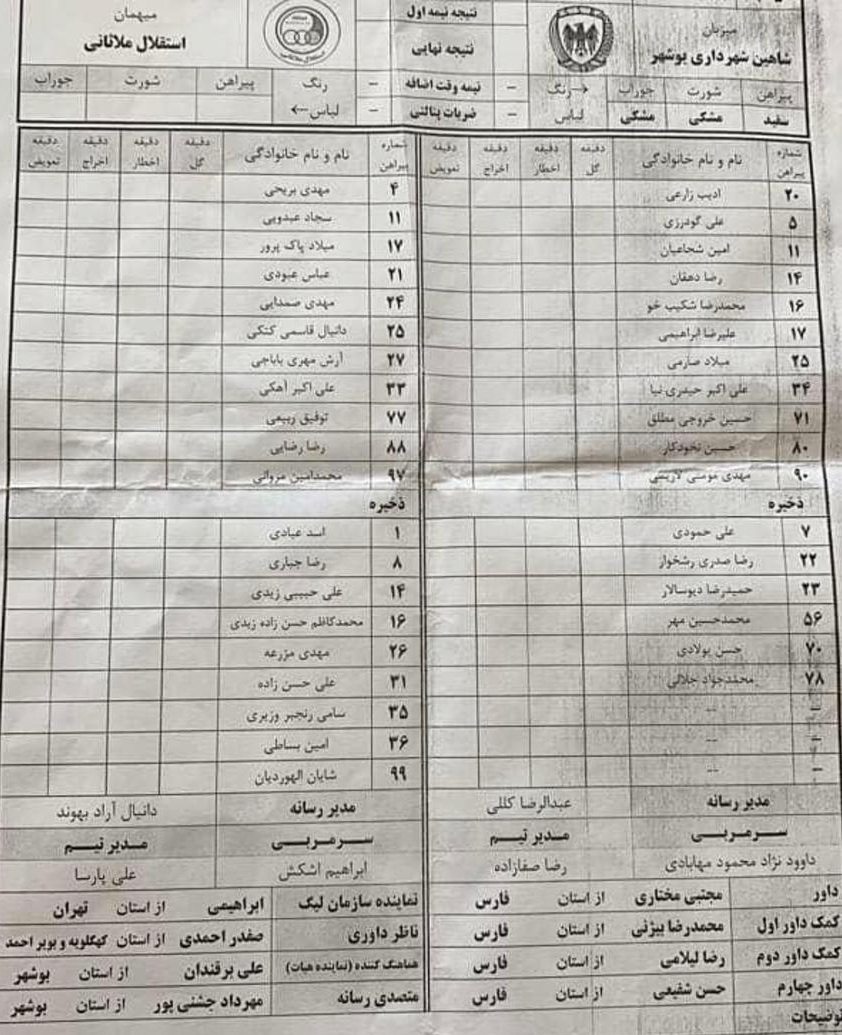 میزبان
شاهین شهرداری بوشهر
نتیجه نیمه اول
نتیجه نهایی
میهمان
استقلال ملاثانی
پیراهن شورت جوراب رنگ لباس
سفید مشکی مشکی
نیمه وقت اضافه
ضربات پنالتی
رنگ لباس پیراهن شورت جوراب
شماره پیراهن نام و نام خانوادگی دقیقه گل دقیقه اخطار دقیقه اخراج دقیقه تعویض
۲۰ ادیب زارعی
۵ علی گودرزی
۱۱ امین شجاعیان
۱۴ رضا دهقان
۱۶ محمدرضا شکیب خو
۱۷ علیرضا ابراهیمی
۲۵ میلاد صارمی
۳۴ علی اکبر حیدری نیا
۷۱ حسین خروجی مطلق
۸۰ حسین نخودکار
۹۰ مهدی مومنی لاریمی
ذخیره
۷ علی حمودی
۲۲ رضا صدری رشخوار
۲۳ حمیدرضا دیوسالار
۵۶ محمدحسین مهر
۷۰ حسن پولادی
۷۸ محمدجواد جلالی
– --
– --
– --
مدیر رسانه عبدالرضا کللی
سرمربی مدیر تیم
داوود نژاد محمود مهابادی رضا صفازاده
شماره پیراهن نام و نام خانوادگی دقیقه گل دقیقه اخطار دقیقه اخراج دقیقه تعویض
۴ مهدی بریحی
۱۱ سجاد عبدویی
۱۷ میلاد پاک پرور
۲۱ عباس عبودی
۲۴ مهدی صمدایی
۲۵ دانیال قاسمی کتکی
۲۷ آرش مهری باباجی
۳۳ علی اکبر آهکی
۷۷ توفیق ربیعی
۸۸ رضا رضایی
۹۷ محمدامین مروانی
ذخیره
۱ اسد عبادی
۸ رضا جباری
۱۴ علی حبیبی زیدی
۱۶ محمدکاظم حسن زاده زیدی
۲۶ مهدی مزرعه
۳۱ علی حسن زاده
۳۵ سامی رنجبر وزیری
۳۶ امین بساطی
۹۹ شایان الهوردیان
مدیر رسانه دانیال آراد بهوند
سرمربی مدیر تیم
ابراهیم اشکش علی پارسا
داور مجتبی مختاری از استان فارس
کمک داور اول محمدرضا بیژنی از استان فارس
کمک داور دوم رضا لیلامی از استان فارس
داور چهارم حسن شفیعی از استان فارس
توضیحات
نماینده سازمان لیگ ابراهیمی از استان تهران
ناظر داوری صفدر احمدی از استان کهگلویه و بویر احمد
هماهنگ کننده (نماینده هیات) علی برقندان از استان بوشهر
متصدی رسانه مهرداد جشنی پور از استان بوشهر